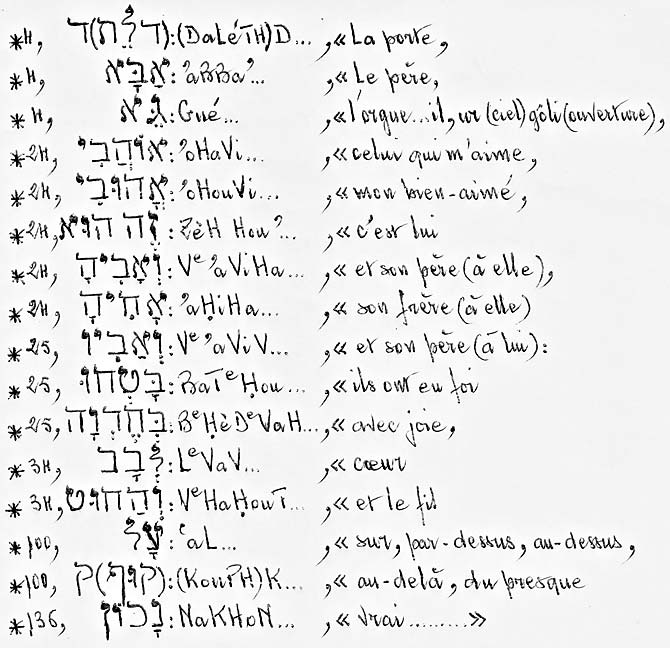 *4, ד(דָּלֶת):(DaLéTH)D... ,« La porte,
*4, אַבָּא:ʾaBBaʾ... ,« Le père,
*4, גֵּא:Gué... ,« l'orgue...il, ur (ciel) gôli (ouverture),
*24, אוֹהֲבִי:ʾoHaVi... ,« celui qui m'aime,
*24, אֲהוּבִי:ʾaHouVi... ,« mon bien-aimé,
*24, זֶה הוּא:ZèH Houʾ... ,« c'est lui
*24, וְאָבִיהָ:Vᵉ ʾaViHa... ,« et son père (à elle),
*24, אָחִיהָ:ʾaḤiHa... ,« son frère (à elle)
*25, וְאָבִיו:Vᵉ ʾaViV... ,« et son père (à lui):
*25, בָּטְחוּ:BaTᵉḤou... ,« ils ont eu foi
*25, בְּחֶדְוָה:BᵉḤèDᵉVaH... ,« avec joie,
*34, לְבַב:LᵉVaV... ,« cœur
*34, וְהַחוּט:VᵉHaḤouT... ,« et le fil
*100, עַל:ʿaL... ,« sur, par-dessus, au-dessus,
*100, ק(קוּף):(KouPH)K... ,« au-delà, du presque
*136, נָכוֹן:NaKHoN... ,« vrai.........»